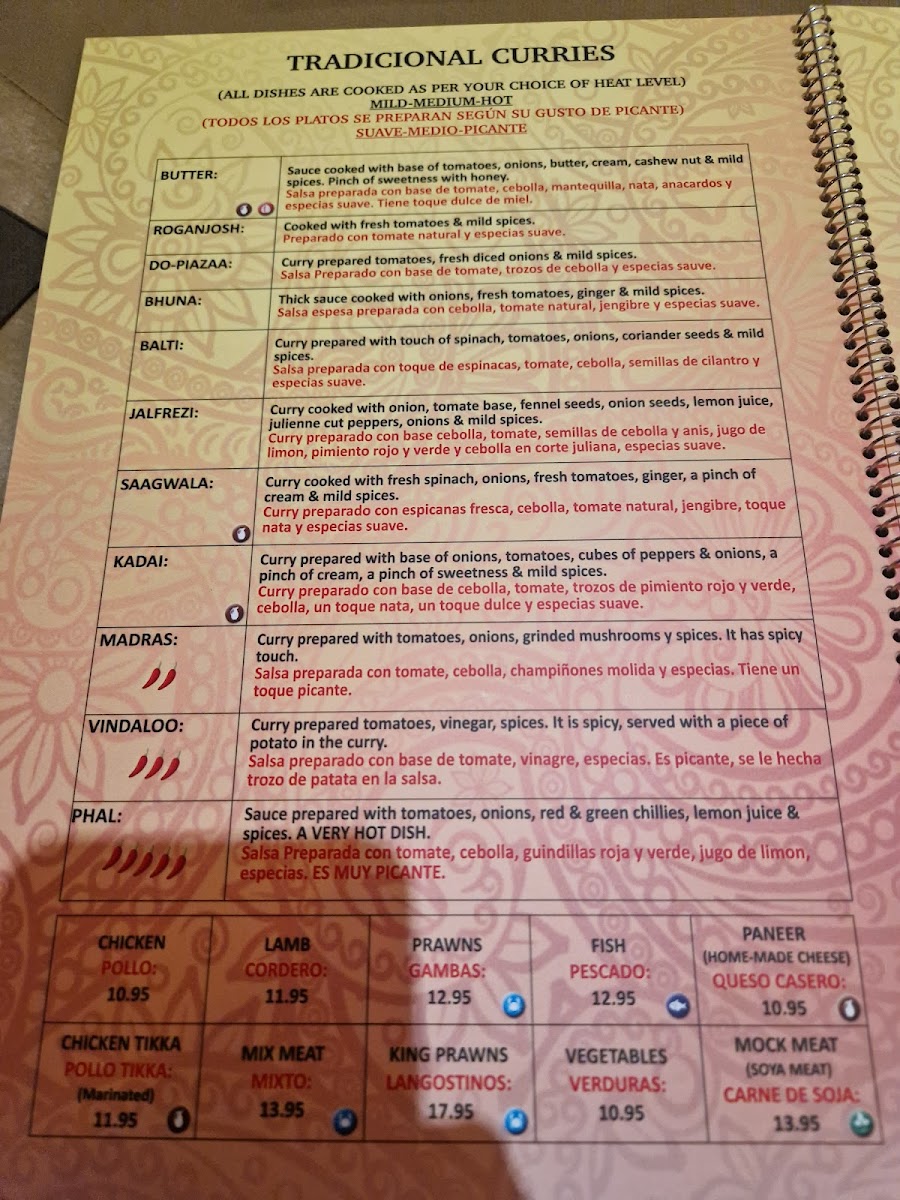 TRADICIONAL CURRIES
(ALL DISHES ARE COOKED AS PER YOUR CHOICE OF HEAT LEVEL)
MILD-MEDIUM-HOT
(TODOS LOS PLATOS SE PREPARAN SEGÚN SU GUSTO DE PICANTE)
SUAVE-MEDIO-PICANTE
BUTTER:
Sauce cooked with base of tomatoes, onions, butter, cream, cashew nut & mild
spices. Pinch of sweetness with honey.
Salsa preparada con base de tomate, cebolla, mantequilla, nata, anacardos y
especias suave. Tiene toque dulce de miel.
ROGANJOSH:
Cooked with fresh tomatoes & mild spices.
Preparado con tomate natural y especias suave.
DO-PIAZAA:
Curry prepared tomatoes, fresh diced onions & mild spices.
Salsa Preparado con base de tomate, trozos de cebolla y especias sauve.
BHUNA:
Thick sauce cooked with onions, fresh tomatoes, ginger & mild spices.
Salsa espesa preparada con cebolla, tomate natural, jengibre y especias suave.
BALTI:
Curry prepared with touch of spinach, tomatoes, onions, coriander seeds & mild
spices.
Salsa preparada con toque de espinacas, tomate, cebolla, semillas de cilantro y
especias suave.
JALFREZI:
Curry cooked with onion, tomato base, fennel seeds, onion seeds, lemon juice,
julienne cut peppers, onions & mild spices.
Curry preparado con base cebolla, tomate, semillas de cebolla y anis, jugo de
limon, pimiento rojo y verde y cebolla en corte juliana, especias suave.
SAAGWALA:
Curry cooked with fresh spinach, onions, fresh tomatoes, ginger, a pinch of
cream & mild spices.
Curry preparado con espicanas fresca, cebolla, tomate natural, jengibre, toque
nata y especias suave.
KADAI:
Curry prepared with base of onions, tomatoes, cubes of peppers & onions, a
pinch of cream, a pinch of sweetness & mild spices.
Curry preparado con base de cebolla, tomate, trozos de pimiento rojo y verde,
cebolla, un toque nata, un toque dulce y especias suave.
MADRAS:
Curry prepared with tomatoes, onions, grinded mushrooms y spices. It has spicy
touch.
Salsa preparada con tomate, cebolla, champiñones molida y especias. Tiene un
toque picante.
VINDALOO:
Curry prepared tomatoes, vinegar, spices. It is spicy, served with a piece of
potato in the curry.
Salsa preparado con base de tomate, vinagre, especias. Es picante, se le hecha
trozo de patata en la salsa.
PHAL:
Sauce prepared with tomatoes, onions, red & green chillies, lemon juice &
spices. A VERY HOT DISH.
Salsa Preparada con tomate, cebolla, guindillas roja y verde, jugo de limon,
especias. ES MUY PICANTE.
CHICKEN
POLLO:
10.95
LAMB
CORDERO:
11.95
PRAWNS
GAMBAS:
12.95
FISH
PESCADO:
12.95
PANEER
(HOME-MADE CHEESE)
QUESO CASERO:
10.95
CHICKEN TIKKA
POLLO TIKKA:
(Marinated)
11.95
MIX MEAT
MIXTO:
13.95
KING PRAWNS
LANGOSTINOS:
17.95
VEGETABLES
VERDURAS:
10.95
MOCK MEAT
(SOYA MEAT)
CARNE DE SOJA:
13.95